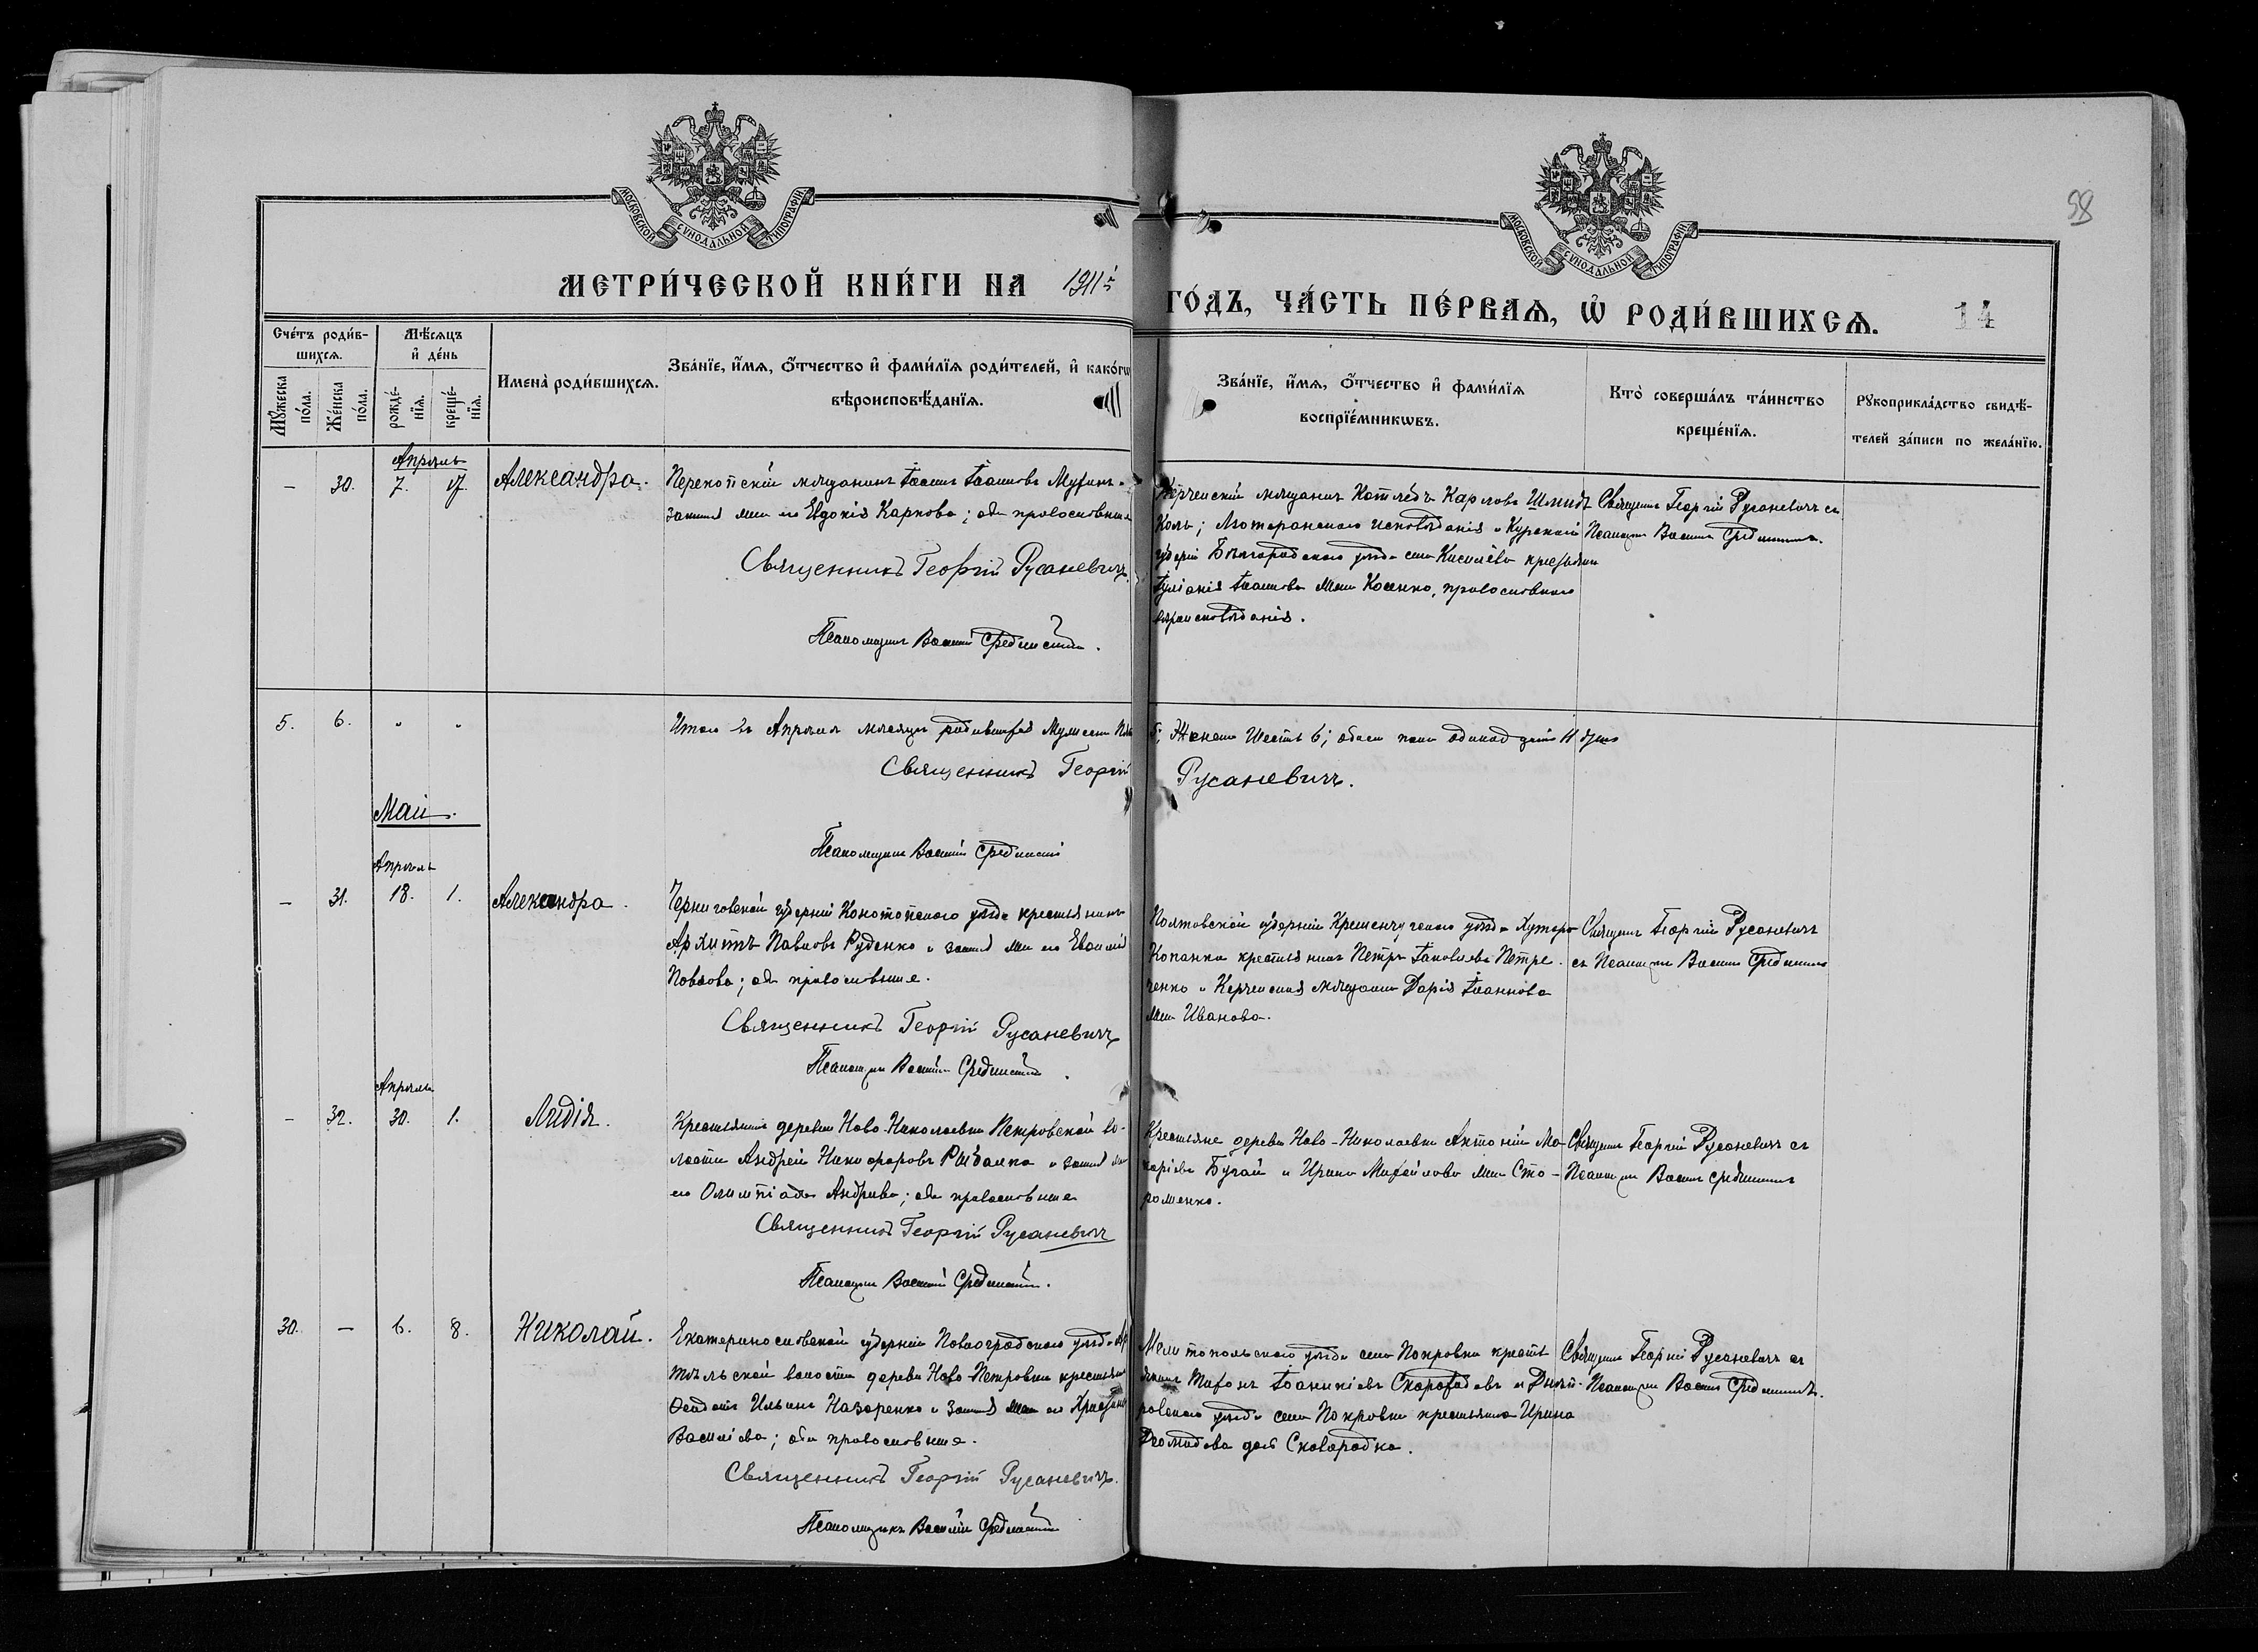 МОСКОВСКОЙ СѴНОДАЛЬНОЙ ТИПОГРАФІИ
МОСКОВСКОЙ СѴНОДАЛЬНОЙ ТИПОГРАФІИ
98
МЕТРИ́ЧЕСКОЙ КНИ́ГИ НА 1911й
ГО́ДЪ, ЧА́СТЬ ПЕ́РВАѦ, Ѡ РОДИ́ВШИХСѦ.
14
Сче́тъ роди́в-
шихсѧ.
Мѣ́сѧцъ
и де́нь
Мꙋ́жеска
по́ла.
Же́нска
по́ла.
рожде́-
нїѧ.
креще́-
нїѧ.
Имена̀ роди́вшихсѧ.
Зва́нїе, и́мѧ, ѻ́тчество и фами́лїѧ роди́телей, и како́гѡ
вѣроисповѣ́данїѧ.
Зва́нїе, и́мѧ, ѻ́тчество и фами́лїѧ
воспрїе́мникѡвъ.
Кто̀ соверша́лъ та́инство
креще́нїѧ.
Рꙋкоприкла́дство свидѣ́-
телей за́писи по жела́нїю.
Апрѣль
— 30. 7. 17. Александра.
Перекопскій мѣщанинъ Іоаннъ Іоанновъ
законная жена его Евдокія Карпова; оба православные
Священникъ Георгій Русаневичъ.
Псаломщикъ Василій Срединскій.
Керченскій мѣщанинъ Готлибъ Карловъ Шмидъ
Лютеранскаго исповѣданія и Курской
губерніи Бѣлгородскаго уѣзда села Киселёва крестьянка
Іуліанія Іоаннова Косенко, православнаго
вѣроисповѣданія.
Священникъ Георгій Русаневичъ съ
Псаломщик. Василіемъ Срединскимъ.
5. 6. " "
Итого въ Апрѣлѣ мѣсяцѣ родившихся Мужеска
5; Женска Шесть 6; обоего пола одинадцать 11 душъ
Священникъ Георгій
Русаневичъ.
Май.
Псаломщикъ Василій Срединскій
Апрѣль
— 31. 18. 1. Александра.
Черниговской губерніи Конотопскаго уѣзда крестьянинъ
Архипъ Павловъ Руденко и законная жена его
Павлова; оба православные.
Священникъ Георгій Русаневичъ
Псаломщикъ Василій Срединскій.
Полтавской губерніи Кременчугскаго уѣзда Хутора
Копанки крестьянинъ Петръ Іаковлевъ Петре-
ченко и Керченская мѣщанка Дарія Іоаннова
Иванова.
Священникъ Георгій Русаневичъ
съ Псаломщик. Василіемъ Срединскимъ
Апрѣль
— 32. 30. 1. Лидія.
Крестьянинъ деревни Ново-Николаевки Петровской во-
лости Андрей Никифоровъ Рыбалка и законная жена
его Олимпіада Андреева; оба православные
Священникъ Георгій Русаневичъ
Псаломщикъ Василій Срединскій.
Крестьяне деревни Ново-Николаевки Антоній Ма-
каріевъ Бугай и Ирина Михайлова Сто-
роженко.
Священникъ Георгій Русаневичъ съ
Псаломщик. Василіемъ Срединскимъ
30. — 6. 8. Николай.
Екатеринославской губерніи Павлоградскаго уѣзда
волости деревни Ново-Петровки крестьянинъ
Ильинъ Назаренко и законная жена его
Василіева; оба православные.
Священникъ Георгій Русаневичъ.
Псаломщикъ Василій Срединскій
Мелитопольскаго уѣзда села Покровки кресть-
янинъ Іоанникіевъ и Днѣп-
ровскаго уѣзда села Покровки крестьянка Ирина
Сковородка.
Священникъ Георгій Русаневичъ съ
Псаломщик. Василіемъ Срединскимъ.